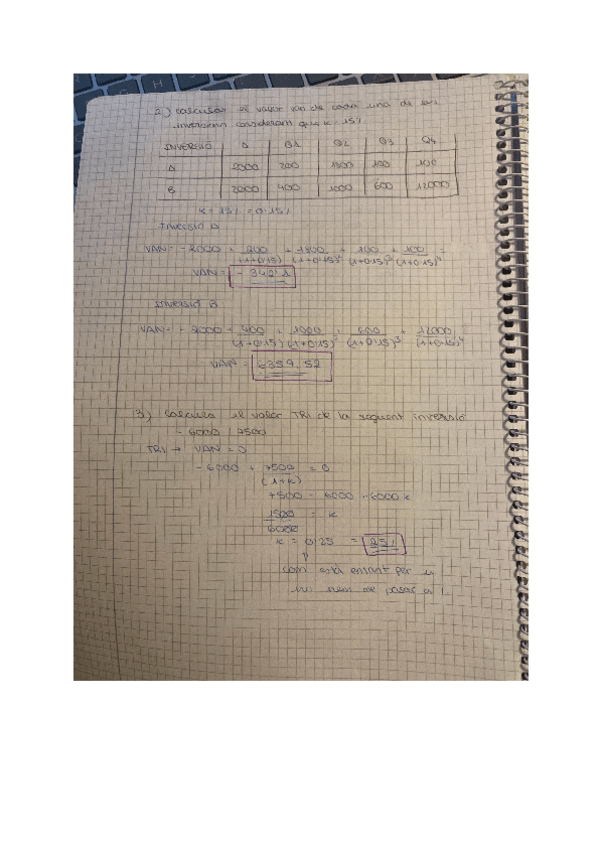 2.) Calcular el valor van de cada una de les
inversions considerant que k = 15%
INVERSIÓ D Q1 Q2 Q3 Q4
A 2000 200 1800 100 100
B 2000 400 1000 600 12000
K = 15% = 0'15%
Inversió A
VAN = -2000 + 200/(1+0'15) + 1800/(1+0'15)² + 100/(1+0'15)³ + 100/(1+0'15)⁴ =
VAN = - 342'1
Inversió B
VAN = - 2000 + 400/(1+0'15) + 1000/(1+0'15)² + 600/(1+0'15)³ + 12000/(1+0'15)⁴
VAN = 6359,52
3) Calcula el valor TRI de la seguent inversió
- 6000 / 7500
TRI → VAN = 0
- 6000 + 7500/(1+k) = 0
7500 - 6000 - 6000 k
1500/6000 = k
k = 0'25 = 25%
com està en tant per u
ho hem de passar a